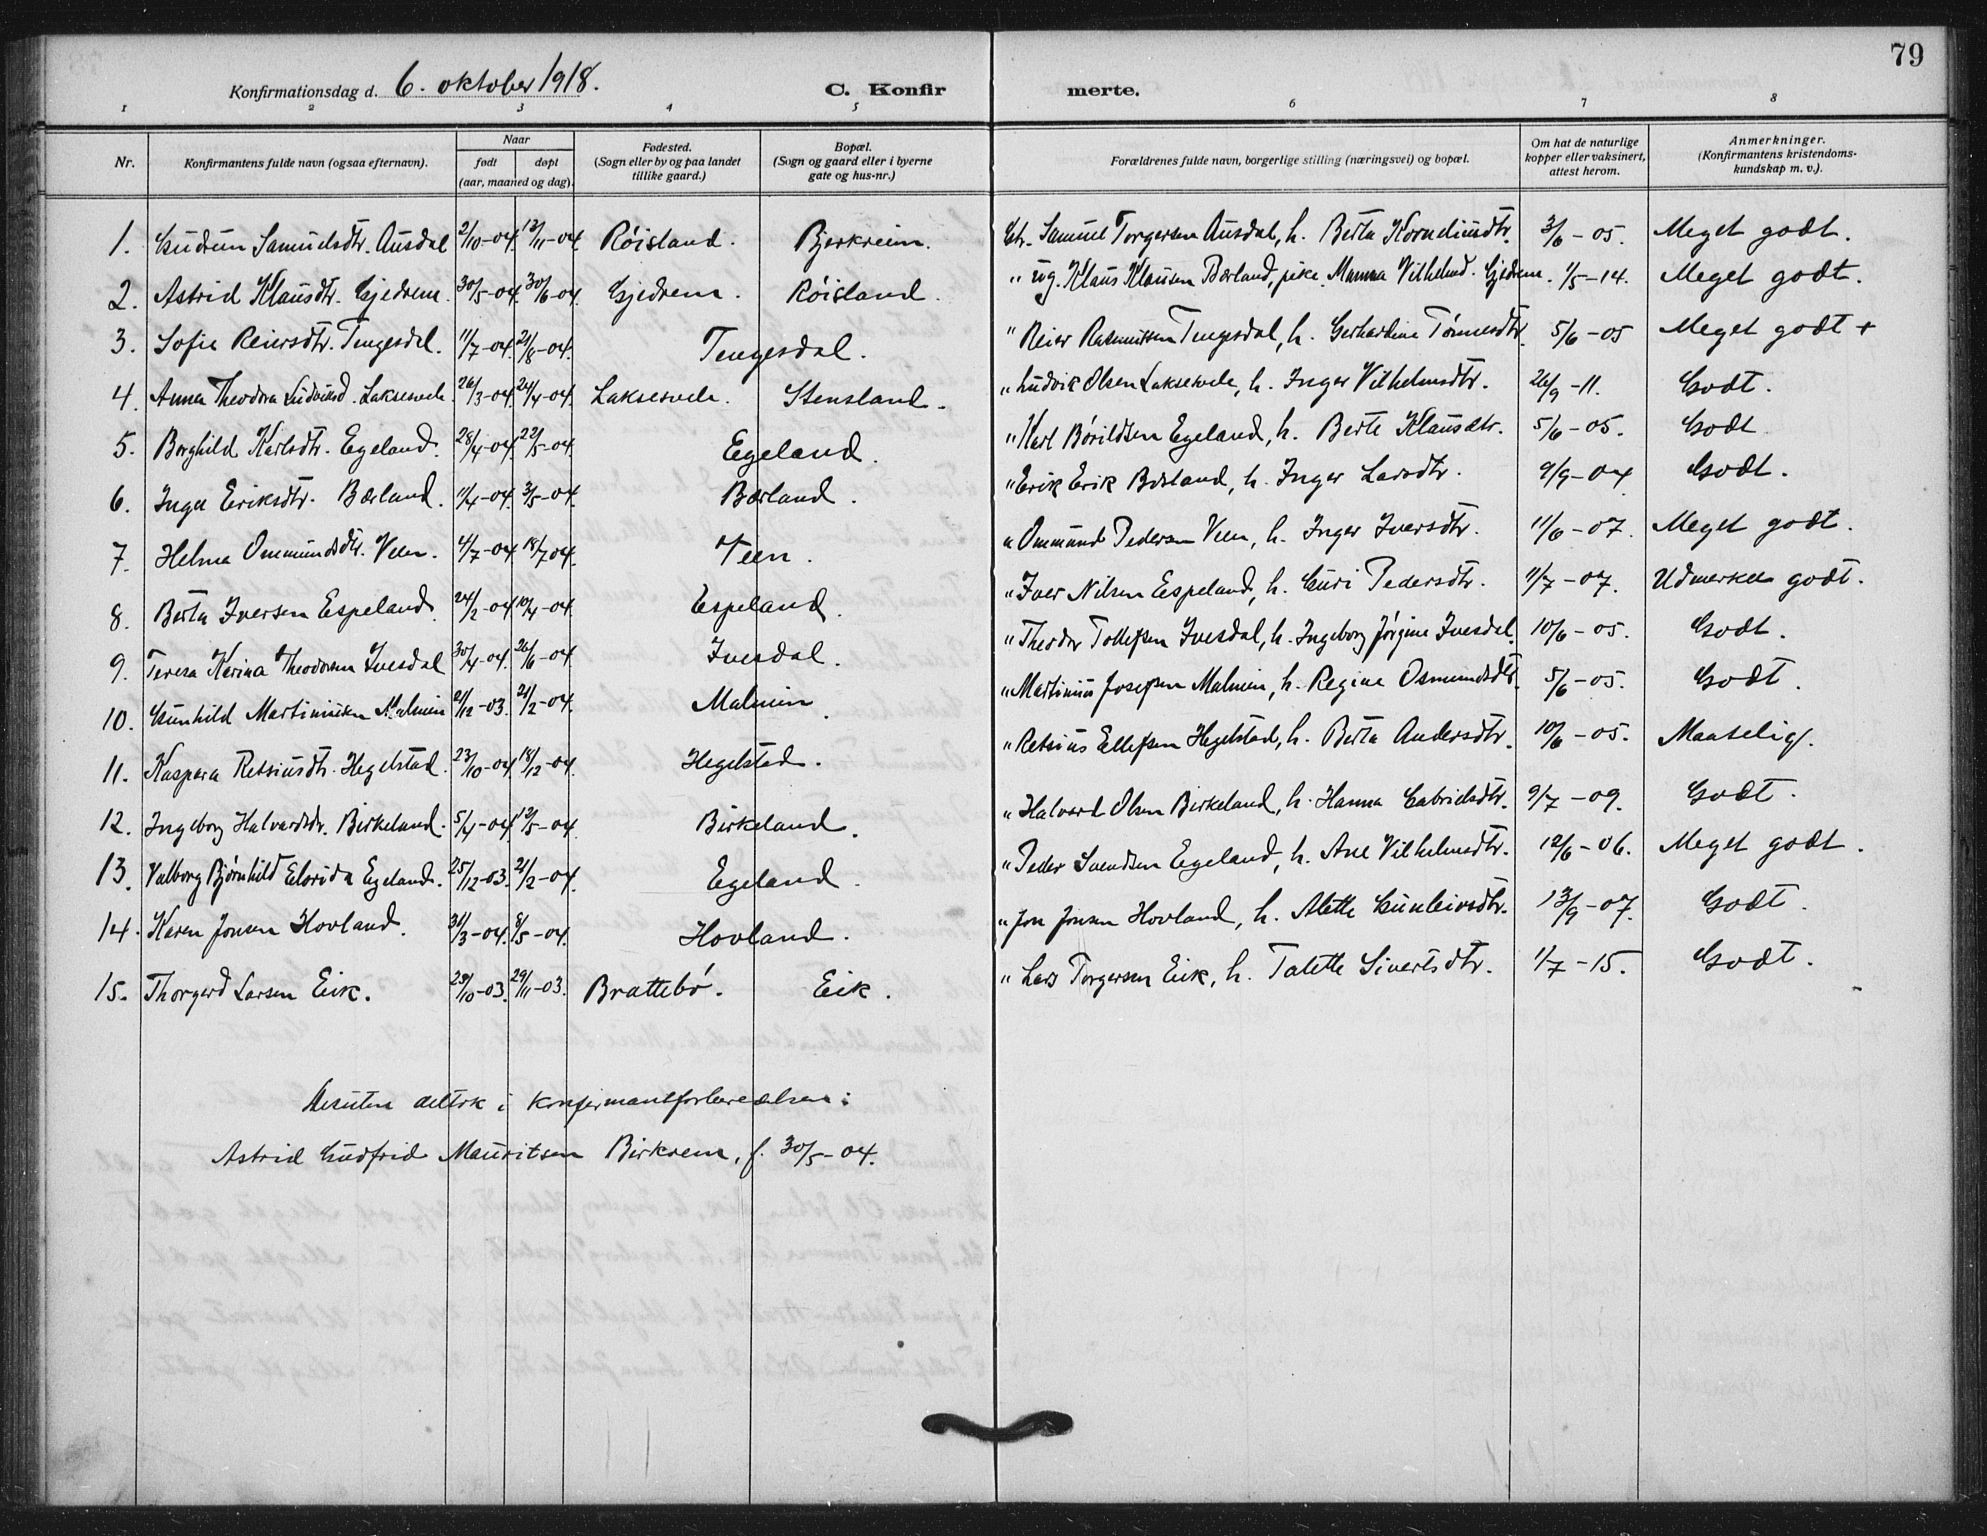 79
Konfirmationsdag d. 6. oktober 1918. C. Konfirmerte.
1 2 3 4 5 6 7 8
Nr. Konfirmantens fulde navn (ogsaa efternavn). Naar født døpt (aar, maaned og dag). Fødested. (Sogn eller by og paa landet tillike gaard.) Bopæl. (Sogn og gaard eller i byerne gate og hus-nr.) Forældrenes fulde navn, borgerlige stilling (næringsvei) og bopæl. Om hat de naturlige kopper eller vaksinert, attest herom. Anmerkninger. (Konfirmantens kristendomskundskap m. v.).
1. Gudrun Samuelsdtr. Ausdal 2/10-04. 13/11-04. Røisland. Bjerkreim. Gbr. Samuel Torgersen Ausdal, h. Berta Korneliusdtr. 3/6-05. Meget godt.
2. Astrid Klausdtr. Gjedrem. 30/5-04. 30/6-04. Gjedrem. Røisland. " ug. Klaus Klausen Bærland, pike Mamma Vilhelmd. Gjedrem. 1/5-14. Meget godt.
3. Sofie Reiersdtr. Tengesdal. 11/7-04. 21/8-04. Tengesdal. " Reier Rasmussen Tengesdal, h. Gerhardine Tønnesdtr. 5/6-05 Meget godt +
4. Anna Theodora Ludviksd. Laksesvele 26/3-04. 24/4-04. Laksesvele. Stensland. " Ludvik Olsen Laksesvele, h. Inger Vilhelmsdtr. 26/9-11. Godt.
5. Borghild Karlsdtr. Egeland. 28/4-04. 22/5-04. Egeland. " Karl Børildsen Egeland, h. Berte Klausdtr. 5/6-05. Godt
6. Inga Eriksdtr. Bærland. 11/4-04. 3/5-04. Bærland. " Erik Erik Bærland, h. Inger Larsdtr. 9/9-04 Godt.
7. Helma Ommundsdtr. Veen. 4/7-04. 18/7 04. Veen. " Ommund Pedersen Veen, h. Inger Iversdtr. 11/6-07. Meget godt.
8. Berta Iversen Espeland. 24/2-04. 10/4-04. Espeland. " Iver Nilsen Espeland, h. Guri Pedersdtr. 11/7-07. Udmerket godt.
9. Teresa Karina Theodorsen Ivesdal 30/4-04. 26/6-04. Ivesdal. " Theodor Tollefsen Ivesdal, h. Ingeborg Jørgine Ivesdal. 10/6-05. Godt.
10. Gunhild Martinusen Malmin 21/12-03. 21/2-04. Malmin. " Martinius Josefsen Malmin, h. Regine Osmundsdtr. 5/6-05. Godt.
11. Kaspara Retsiusdtr. Hegelstad. 23/10-04. 18/12-04. Hegelstad. " Retsius Ellefsen Hegelstad, h. Berta Andersdtr. 10/6-05. Maatelig.
12. Ingeborg Halvardsdr. Birkeland. 5/4-04. 12/5-04. Birkeland. " Halvard Olsen Birkeland, h. Hanna Gabrielsdtr. 9/7-09. Godt.
13. Valborg Bjørnhild Elvrida Egeland. 25/12-03. 21/2-04. Egeland. " Peder Svendsen Egeland, h. Ane Vilhelmsdtr. 12/6-06. Meget godt.
14. Karen Jonsen Hovland. 31/3-04. 8/5-04. Hovland. " Jon Jonsen Hovland, h. Alette Gunleivsdtr. 13/9-07. Godt.
15. Thorgerd Larsen Eik. 29/10-03. 29/11-03. Brattebø. Eik. " Lars Torgersen Eik, h. Talette Sivertsdtr. 1/7-15. Godt.
Desuten deltok i konfirmantforberedelsen:
Astrid Gudfrid Mauritsen Birkrem, f. 30/5-04.